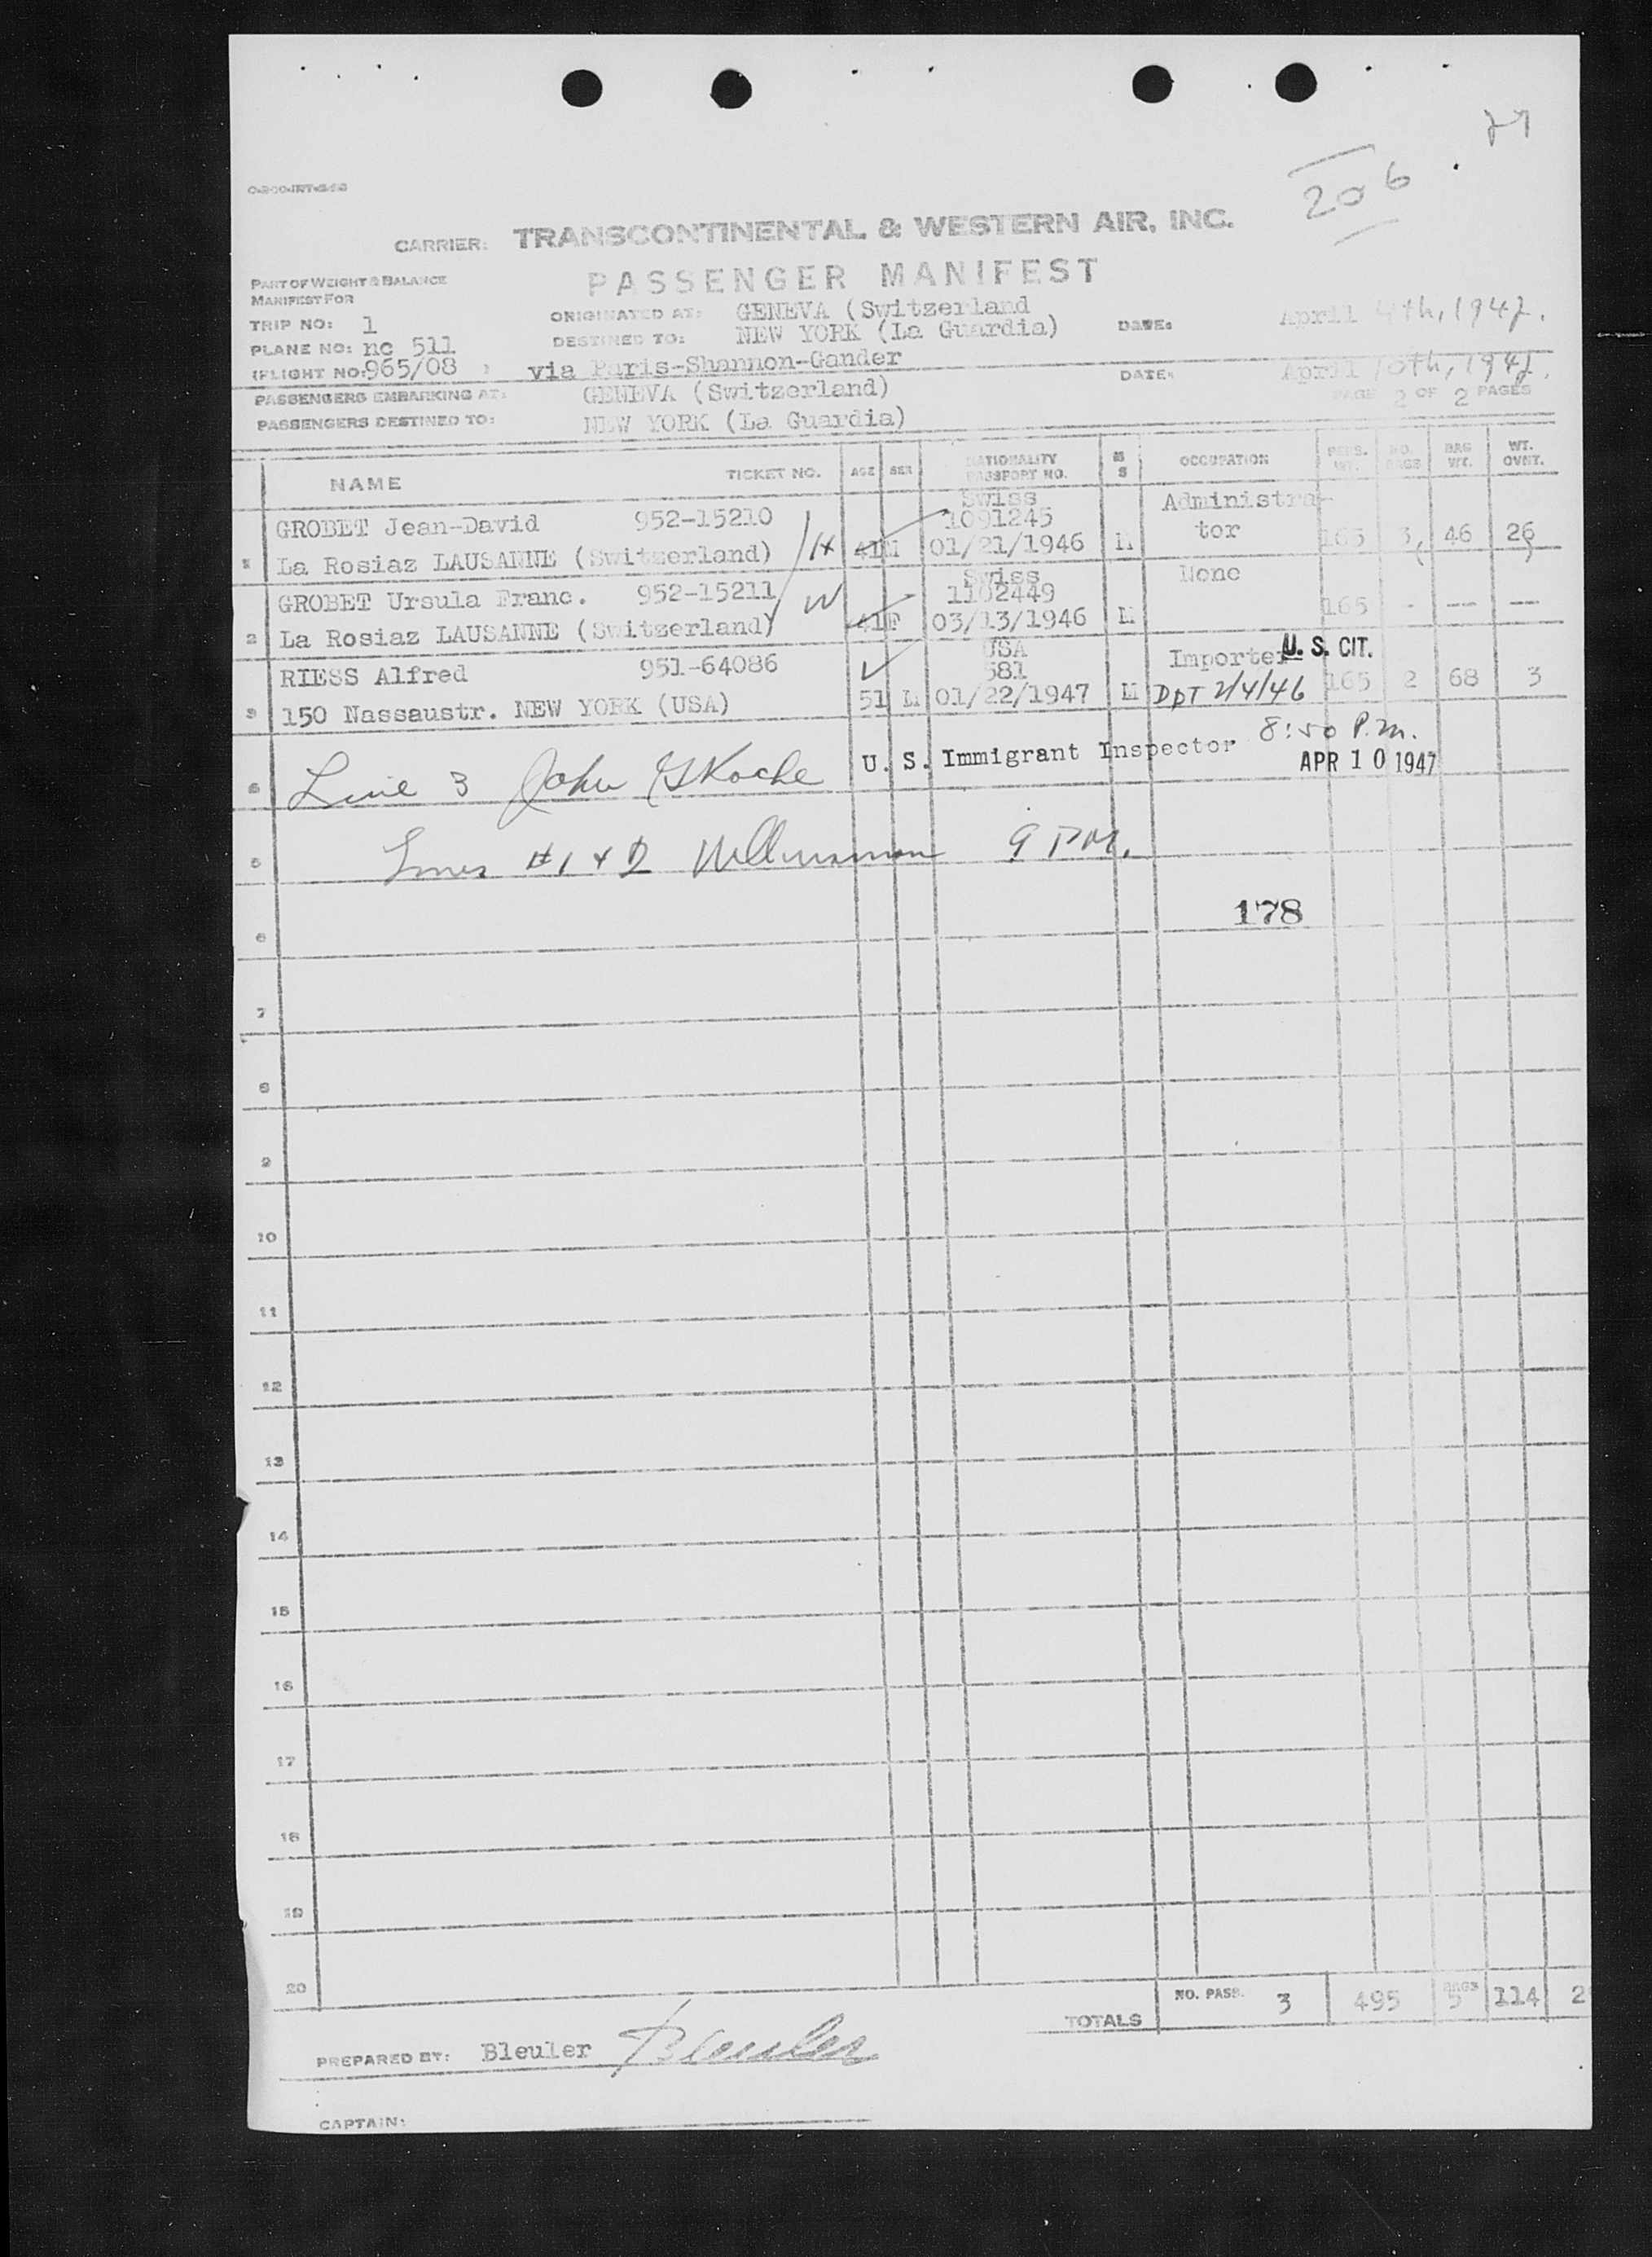 206
CARRIER: TRANSCONTINENTAL & WESTERN AIR, INC.
PART OF WEIGHT & BALANCE
MANIFEST FOR
PASSENGER MANIFEST
TRIP NO: 1
ORIGINATED AT: GENEVA (Switzerland
DATE: April 4th, 1947.
PLANE NO: nc 511
DESTINED TO: NEW YORK (La Guardia)
(FLIGHT NO: 965/08 )
via Paris-Shannon-Gander
DATE: April 10th, 1947.
PASSENGERS EMBARKING AT: GENEVA (Switzerland)
PAGE 2 OF 2 PAGES
PASSENGERS DESTINED TO: NEW YORK (La Guardia)
NAME TICKET NO. AGE SEX NATIONALITY PASSPORT NO. M S OCCUPATION PERS. WT. NO. BAGS BAG WT. WT. OVNT.
Swiss Administra-
GROBET Jean-David 952-15210 1091245 tor
1 La Rosiaz LAUSANNE (Switzerland) 41 M 01/21/1946 M 165 3 46 26
Swiss None
GROBET Ursula Franc. 952-15211 1102449
2 La Rosiaz LAUSANNE (Switzerland) 41 F 03/13/1946 M 165 - -- --
USA
RIESS Alfred 951-64086 581 Importer U. S. CIT.
3 150 Nassaustr. NEW YORK (USA) 51 M 01/22/1947 M DPT 2/4/46 165 2 68 3
Line 3 John U. S. Immigrant Inspector 8:50 P.M.
APR 10 1947
5 Lines #1 + 2 9 PM.
178
6
7
8
9
10
11
12
13
14
15
16
17
18
19
20
TOTALS NO. PASS. 3 495 BAGS 5 114 2
PREPARED BY: Bleuler Bleuler
CAPTAIN: